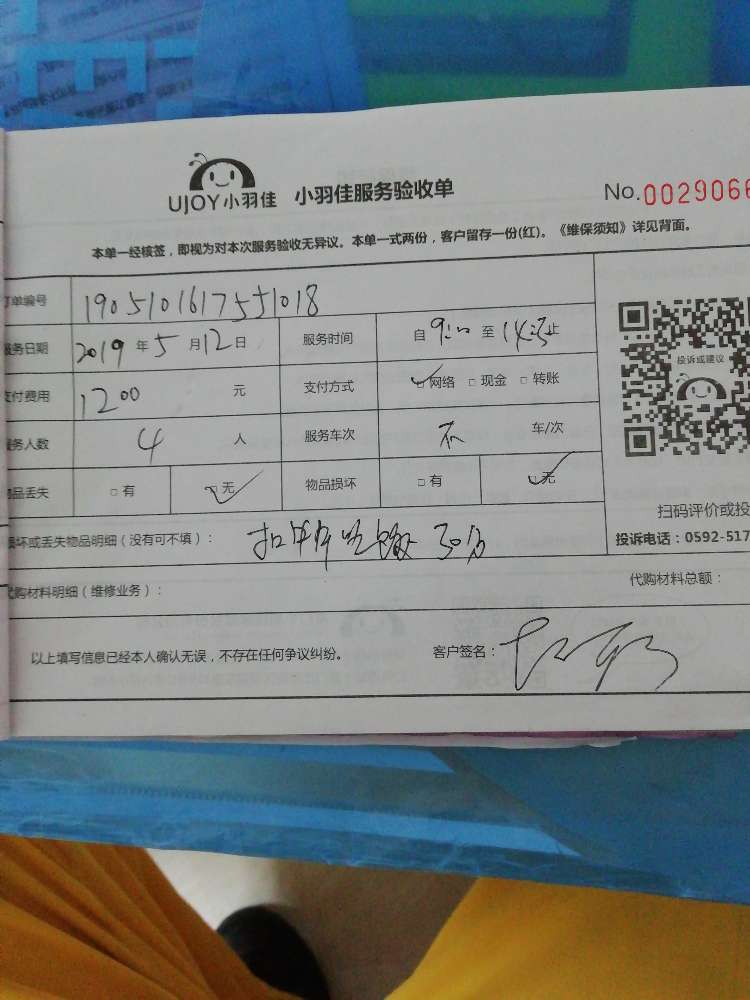 UJOY小羽佳 小羽佳服务验收单 No.0029066
本单一经核签，即视为对本次服务验收无异议。本单一式两份，客户留存一份(红)。《维保须知》详见背面。
订单编号 1905101617551018
服务日期 2019 年 5 月 12 日 服务时间 自 9:00 至 14:30 止
支付费用 1200 元 支付方式 网络 现金 转账
服务人数 4 人 服务车次 不 车/次
物品丢失 有 无 物品损坏 有 无
投诉或建议
扫码评价或投
损坏或丢失物品明细（没有可不填）： 30分
投诉电话：0592-517
代购材料明细（维修业务）： 代购材料总额：
以上填写信息已经本人确认无误，不存在任何争议纠纷。 客户签名：